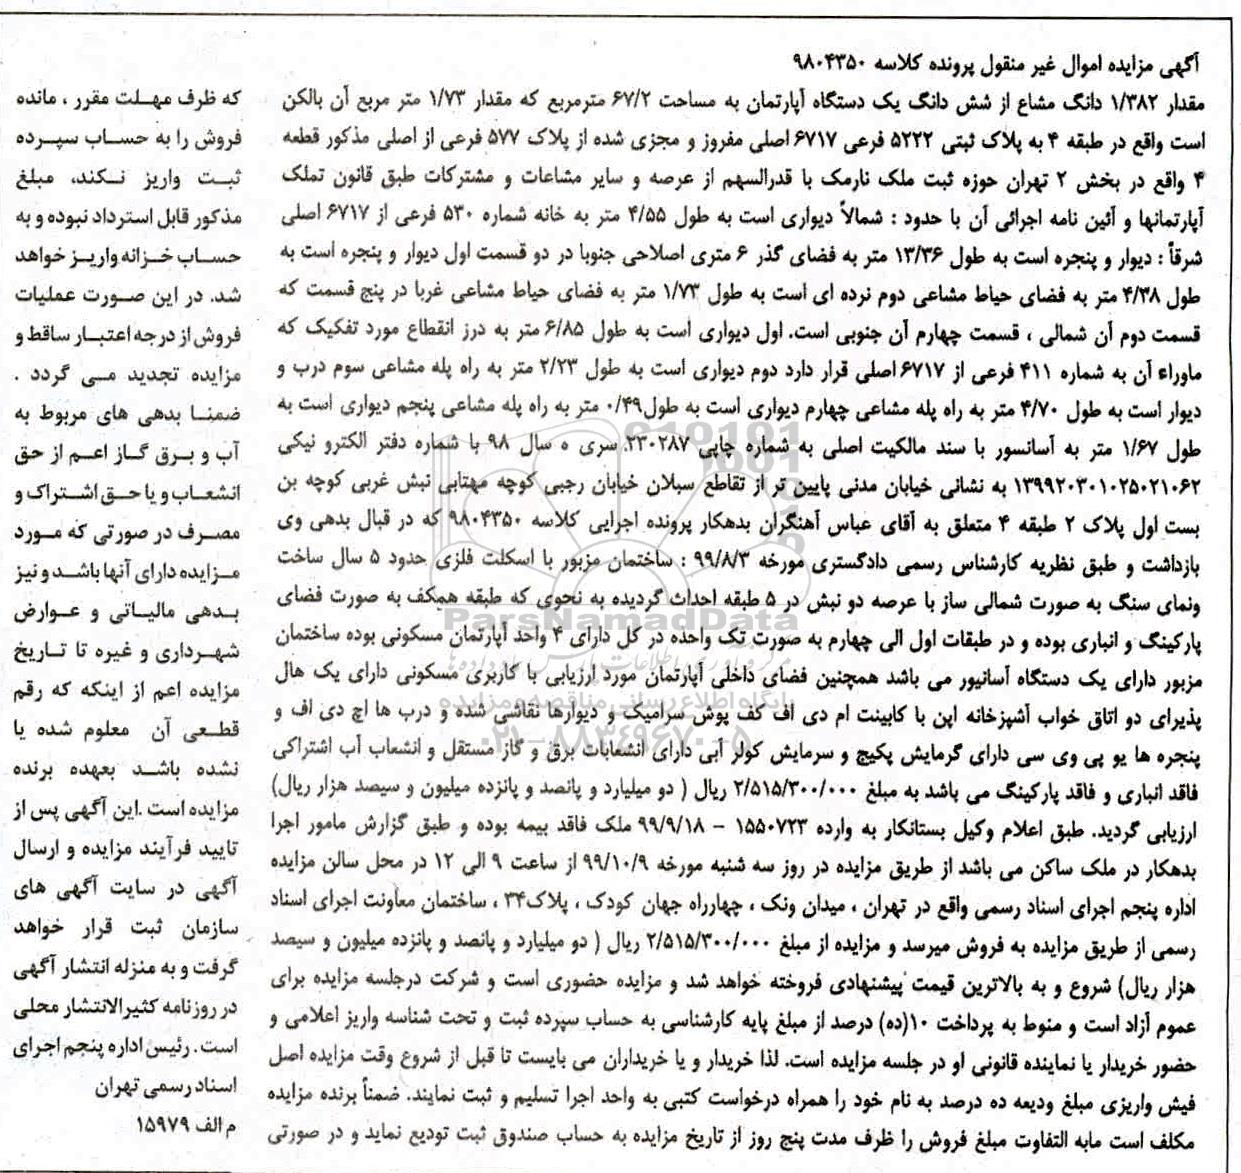 آگهی مزایده اموال غیر منقول پرونده کلاسه ۹۸۰۴۳۵۰
مقدار ۱/۳۸۲ دانگ مشاع از شش دانگ یک دستگاه آپارتمان به مساحت ۶۷/۲ مترمربع که مقدار ۱/۷۳ متر مربع آن بالکن
است واقع در طبقه ۴ به پلاک ثبتی ۵۲۲۲ فرعی ۶۷۱۷ اصلی مفروز و مجزی شده از پلاک ۵۷۷ فرعی از اصلی مذکور قطعه
۴ واقع در بخش ۲ تهران حوزه ثبت ملک نارمک با قدرالسهم از عرصه و سایر مشاعات و مشترکات طبق قانون تملک
آپارتمانها و آئین نامه اجرائی آن با حدود : شمالاً دیواری است به طول ۴/۵۵ متر به خانه شماره ۵۳۰ فرعی از ۶۷۱۷ اصلی
شرقاً : دیوار و پنجره است به طول ۱۳/۳۶ متر به فضای گذر ۶ متری اصلاحی جنوبا در دو قسمت اول دیوار و پنجره است به
طول ۴/۳۸ متر به فضای حیاط مشاعی دوم نرده ای است به طول ۱/۷۳ متر به فضای حیاط مشاعی غربا در پنج قسمت که
قسمت دوم آن شمالی ، قسمت چهارم آن جنوبی است. اول دیواری است به طول ۶/۸۵ متر به درز انقطاع مورد تفکیک که
ماوراء آن به شماره ۴۱۱ فرعی از ۶۷۱۷ اصلی قرار دارد دوم دیواری است به طول ۲/۲۳ متر به راه پله مشاعی سوم درب و
دیوار است به طول ۴/۷۰ متر به راه پله مشاعی چهارم دیواری است به طول۰/۴۹ متر به راه پله مشاعی پنجم دیواری است به
طول ۱/۶۷ متر به آسانسور با سند مالکیت اصلی به شماره چاپی ۲۳۰۲۸۷ سری ه سال ۹۸ با شماره دفتر الکترو نیکی
۱۳۹۹۲۰۳۰۱۰۲۵۰۲۱۰۶۲ به نشانی خیابان مدنی پایین تر از تقاطع سبلان خیابان رجبی کوچه مهتابی نبش غربی کوچه بن
بست اول پلاک ۲ طبقه ۴ متعلق به آقای عباس آهنگران بدهکار پرونده اجرایی کلاسه ۹۸۰۴۳۵۰ که در قبال بدهی وی
بازداشت و طبق نظریه کارشناس رسمی دادگستری مورخه ۹۹/۸/۳ : ساختمان مزبور با اسکلت فلزی حدود ۵ سال ساخت
ونمای سنگ به صورت شمالی ساز با عرصه دو نبش در ۵ طبقه احداث گردیده به نحوی که طبقه همکف به صورت فضای
پارکینگ و انباری بوده و در طبقات اول الی چهارم به صورت تک واحده در کل دارای ۴ واحد آپارتمان مسکونی بوده ساختمان
مزبور دارای یک دستگاه آسانیور می باشد همچنین فضای داخلی آپارتمان مورد ارزیابی با کاربری مسکونی دارای یک هال
پذیرای دو اتاق خواب آشپزخانه اپن با کابینت ام دی اف کف پوش سرامیک و دیوارها نقاشی شده و درب ها اچ دی اف و
پنجره ها یو پی وی سی دارای گرمایش پکیج و سرمایش کولر آبی دارای انشعابات برق و گاز مستقل و انشعاب آب اشتراکی
فاقد انباری و فاقد پارکینگ می باشد به مبلغ ۲/۵۱۵/۳۰۰/۰۰۰ ریال ( دو میلیارد و پانصد و پانزده میلیون و سیصد هزار ریال)
ارزیابی گردید. طبق اعلام وکیل بستانکار به وارده ۱۵۵۰۷۲۳ - ۹۹/۹/۱۸ ملک فاقد بیمه بوده و طبق گزارش مامور اجرا
بدهکار در ملک ساکن می باشد از طریق مزایده در روز سه شنبه مورخه ۹۹/۱۰/۹ از ساعت ۹ الی ۱۲ در محل سالن مزایده
اداره پنجم اجرای اسناد رسمی واقع در تهران ، میدان ونک ، چهارراه جهان کودک ، پلاک۳۴ ، ساختمان معاونت اجرای اسناد
رسمی از طریق مزایده به فروش میرسد و مزایده از مبلغ ۲/۵۱۵/۳۰۰/۰۰۰ ریال ( دو میلیارد و پانصد و پانزده میلیون و سیصد
هزار ریال) شروع و به بالاترین قیمت پیشنهادی فروخته خواهد شد و مزایده حضوری است و شرکت درجلسه مزایده برای
عموم آزاد است و منوط به پرداخت ۱۰(ده) درصد از مبلغ پایه کارشناسی به حساب سپرده ثبت و تحت شناسه واریز اعلامی و
حضور خریدار یا نماینده قانونی او در جلسه مزایده است. لذا خریدار و یا خریداران می بایست تا قبل از شروع وقت مزایده اصل
فیش واریزی مبلغ ودیعه ده درصد به نام خود را همراه درخواست کتبی به واحد اجرا تسلیم و ثبت نمایند. ضمناً برنده مزایده
مکلف است مابه التفاوت مبلغ فروش را ظرف مدت پنج روز از تاریخ مزایده به حساب صندوق ثبت تودیع نماید و در صورتی
که ظرف مهلت مقرر ، مانده
فروش را به حساب سپرده
ثبت واریز نکند، مبلغ
مذکور قابل استرداد نبوده و به
حساب خزانه واریز خواهد
شد. در این صورت عملیات
فروش از درجه اعتبار ساقط و
مزایده تجدید می گردد .
ضمنا بدهی های مربوط به
آب و برق گاز اعم از حق
انشعاب و یا حق اشتراک و
مصرف در صورتی که مورد
مزایده دارای آنها باشد و نیز
بدهی مالیاتی و عوارض
شهرداری و غیره تا تاریخ
مزایده اعم از اینکه که رقم
قطعی آن معلوم شده یا
نشده باشد بعهده برنده
مزایده است .این آگهی پس از
تایید فرآیند مزایده و ارسال
آگهی در سایت آگهی های
سازمان ثبت قرار خواهد
گرفت و به منزله انتشار آگهی
در روزنامه کثیرالانتشار محلی
است . رئیس اداره پنجم اجرای
اسناد رسمی تهران
م الف ۱۵۹۷۹
ParsNamadData
پایگاه اطلاع رسانی مناقصه و مزایده
۰۲۱-۸۸۳۴۹۶۷۰-۵